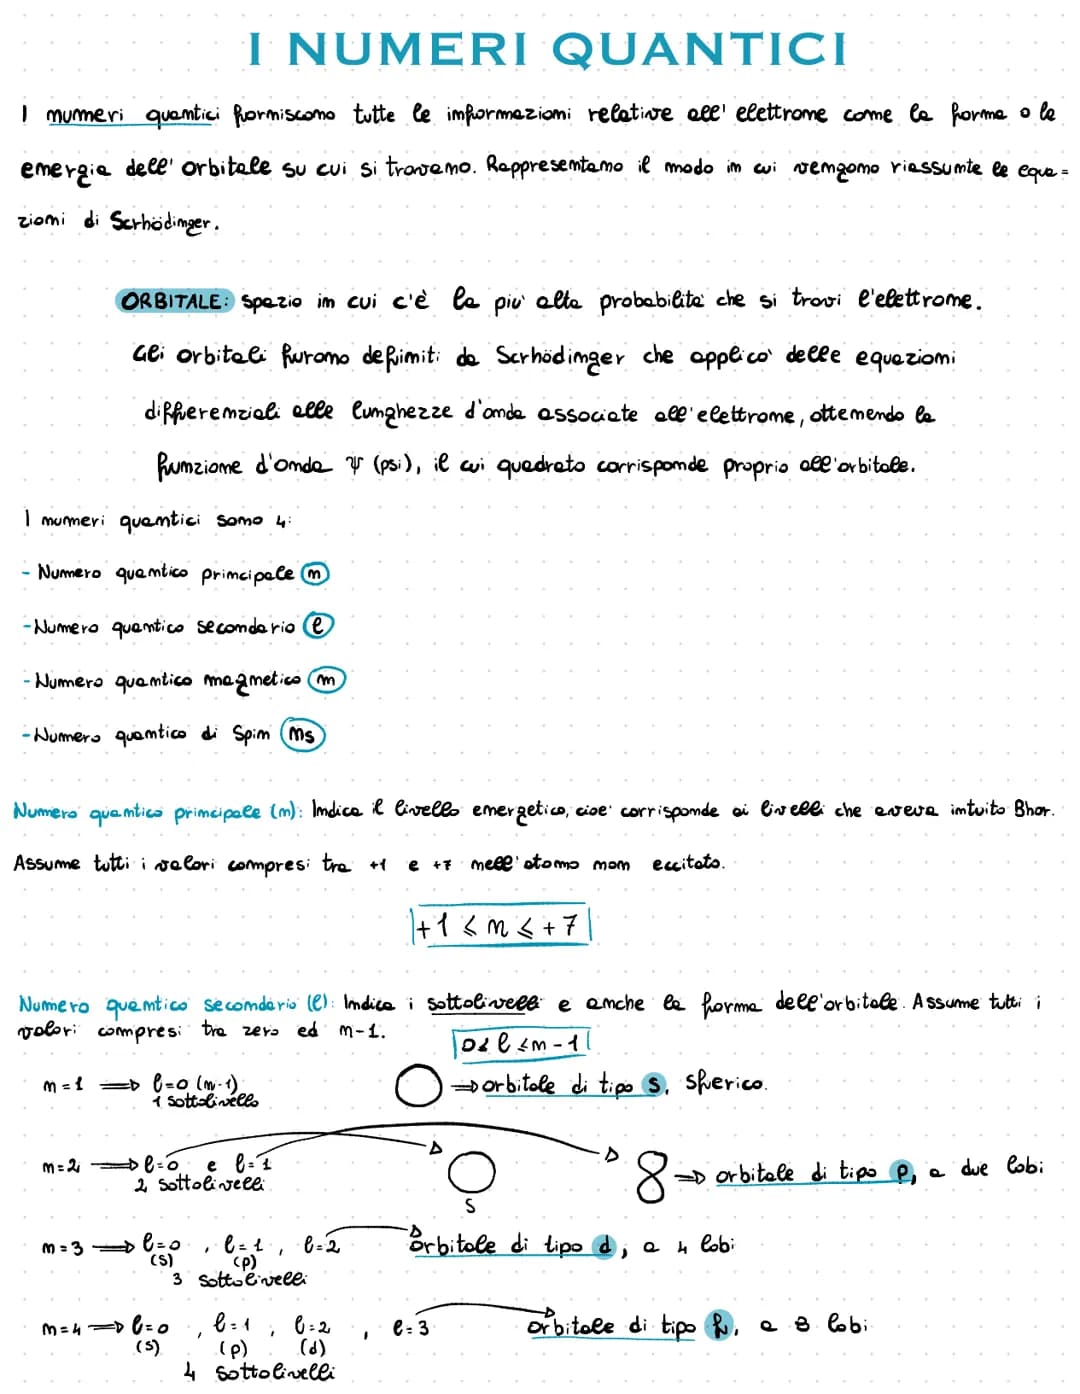 I NUMERI QUANTICI
I numeri quantici forniscono tutte le informazioni relative all'elettrone come la forma o la
energia dell'orbitale su cui si trovano. Rappresentano il modo in cui vengono riassunte le equa=
zioni di Scrhödinger.
ORBITALE: spazio in cui c'è la piu' alta probabilita' che si trovi l'elettrone.
Gli orbitali furono definiti da Scrhödinger che applico' delle equazioni
differenziali alle lunghezze d'onda associate all'elettrone, ottenendo la
funzione d'onda ψ (psi), il cui quadrato corrisponde proprio all'orbitale.
I numeri quantici sono 4:
- Numero quantico principale n
- Numero quantico secondario l
- Numero quantico magnetico m
- Numero quantico di Spin ms
Numero quantico principale (n): Indica il livello energetico, cioe' corrisponde ai livelli che aveva intuito Bhor.
Assume tutti i valori compresi tra +1 e +7 nell'atomo non eccitato.
+1 ⩽ n ⩽ +7
Numero quantico secondario (l): Indica i sottolivelli e anche la forma dell'orbitale. Assume tutti i
valori compresi tra zero ed n-1.
0≤ l ≤n-1
n=1 ⟹ l=0 (n-1) ⟹ orbitale di tipo s, sferico.
1 sottolivello
n=2 ⟹ l=0 e l=1 ⟹ orbitale di tipo p, a due lobi
2 sottolivelli
s
n=3 ⟹ l=0, l=1, l=2 orbitale di tipo d, a 4 lobi
(s) (p)
3 sottolivelli
n=4 ⟹ l=0, l=1, l=2, l=3 orbitale di tipo f, a 8 lobi
(s) (p) (d)
4 sottolivelli